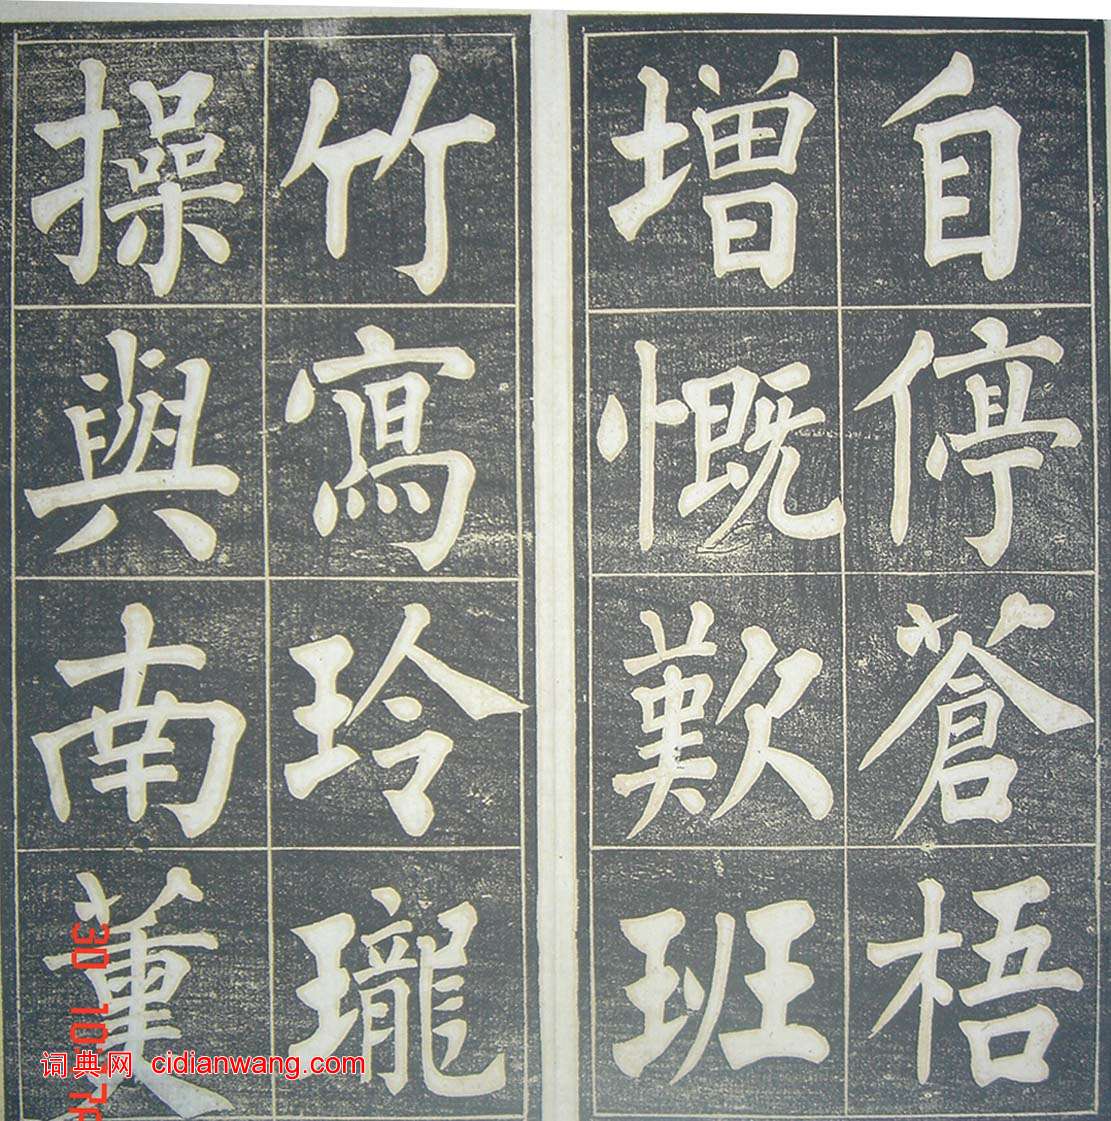 自停蒼梧
増慨歎班
竹寫玲瓏
操與南薰
词典网 cidianwang.com